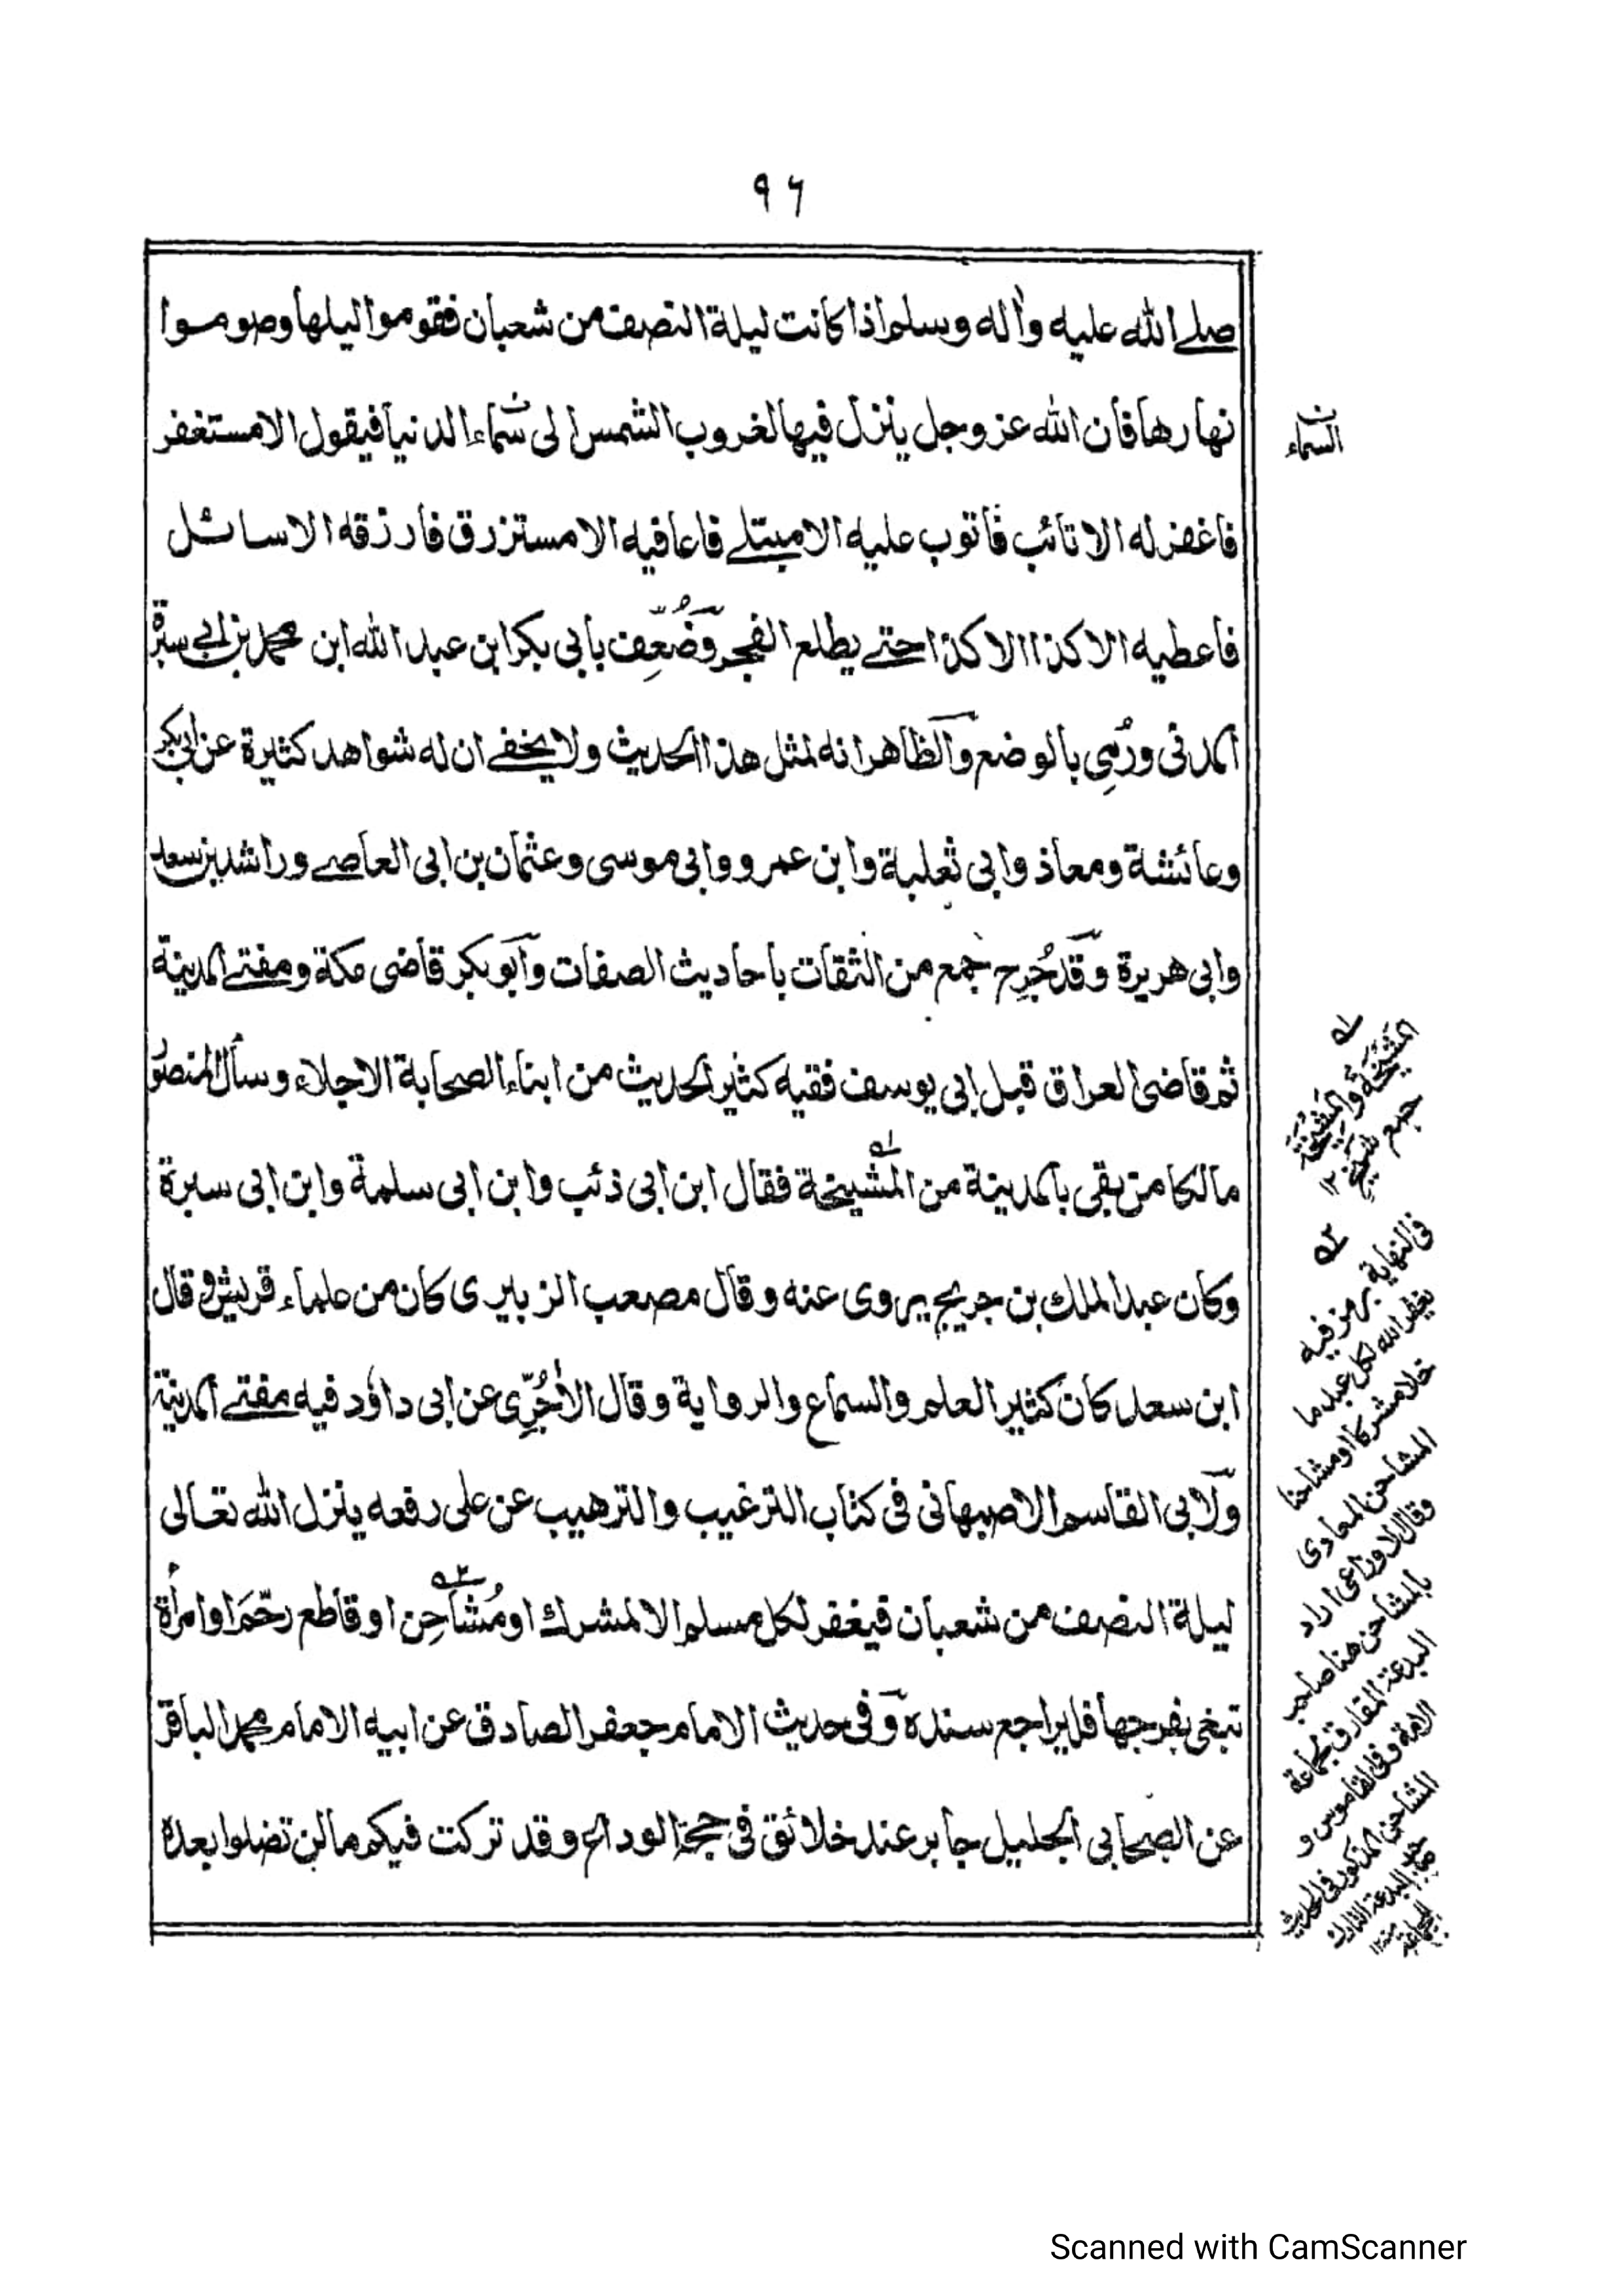 ٩٦
صلے الله عليه واٰله وسلم اذا كانت ليلة النصف من شعبان فقوموا ليلها وصوموا
نهارها فان الله عز وجل ينزل فيها لغروب الشمس الى سماء الدنيا فيقول الا مستغفر
فاغفر له الا تائب فاتوب عليه الا مبتلے فاعافيه الا مسترزق فارزقه الا سائل
فاعطيه الا كذا الا كذا حتے يطلع الفجر وضُعِّف بابى بكر ابن عبد الله ابن محمد بن ابى سبرة
المدنى ورُمِى بالوضع والظاهر انه لمثل هذا الحديث ولا يخفے ان له شواهد كثيرة عن ابى بكر
وعائشة ومعاذ وابى ثعلبة وابن عمرو وابى موسى وعثمان بن ابى العاصے وراشد بن سعد
وابى هريرة وقد جُرِح جمع من الثقات باحاديث الصفات وابو بكر قاضى مكة ومفتے المدينة
ثم قاضى العراق قبل ابى يوسف فقيه كثير الحديث من ابناء الصحابة الاجلاء وسأل المنصور
مالكا من بقى بالمدينة من المشيخة فقال ابن ابى ذئب وابن ابى سلمة وابن ابى سبرة
وكان عبد الملك بن جريج يروى عنه وقال مصعب الزبيرى كان من علماء قريش وقال
ابن سعد كان كثير العلم والسماع والرواية وقال الاٰجُرِّى عن ابى داؤد فيه مفتے المدينة
ولابى القاسم الاصبهانى فى كتاب الترغيب والترهيب عن على رفعه ينزل الله تعالى
ليلة النصف من شعبان فيغفر لكل مسلم الا لمشرك او مُشاحِن او قاطع رحم او امرأة
تبغى بفرجها فليراجع سنده وفى حديث الامام جعفر الصادق عن ابيه الامام محمد الباقر
عن الصحابى الجليل جابر عند خلائق فى حجة الوداع وقد تركت فيكم ما لن تضلوا بعده
السماء
المَشْيَخَة والمَشِيْخَة
جمع شيخ ١٢
فى النهاية
يغفر الله لكل عبد ما
خلا مشركا او مشاحنا
المشاحن المعادى
وقال الاوزاعى اراد
بالمشاحن هنا صاحب
البدعة المفارق لجماعة
الامة وفى القاموس و
المشاحن المذكور فى الحديث
صاحب البدعة التارك
للجماعة ١٢
Scanned with CamScanner